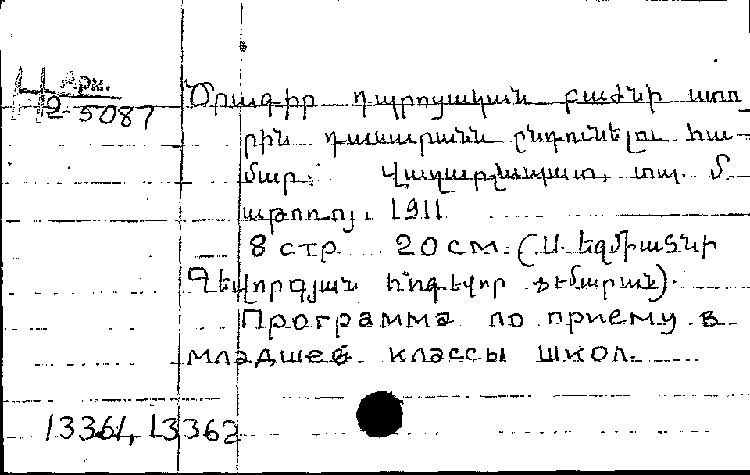 Арм.
H2-5087
Ծրագիր դպրոցական բաժնի ստո-
րին դասարանն ընդունելու հա-
մար: Վաղարշապատ, տպ. Մ.
աթոռոյ. 1911
8 стр 20 см. (Ս. Եզմիածնի
Գեվորգյան հոգևոր ճեմարան).
Программа по приему в
младшее классы школ.
13361, 13362